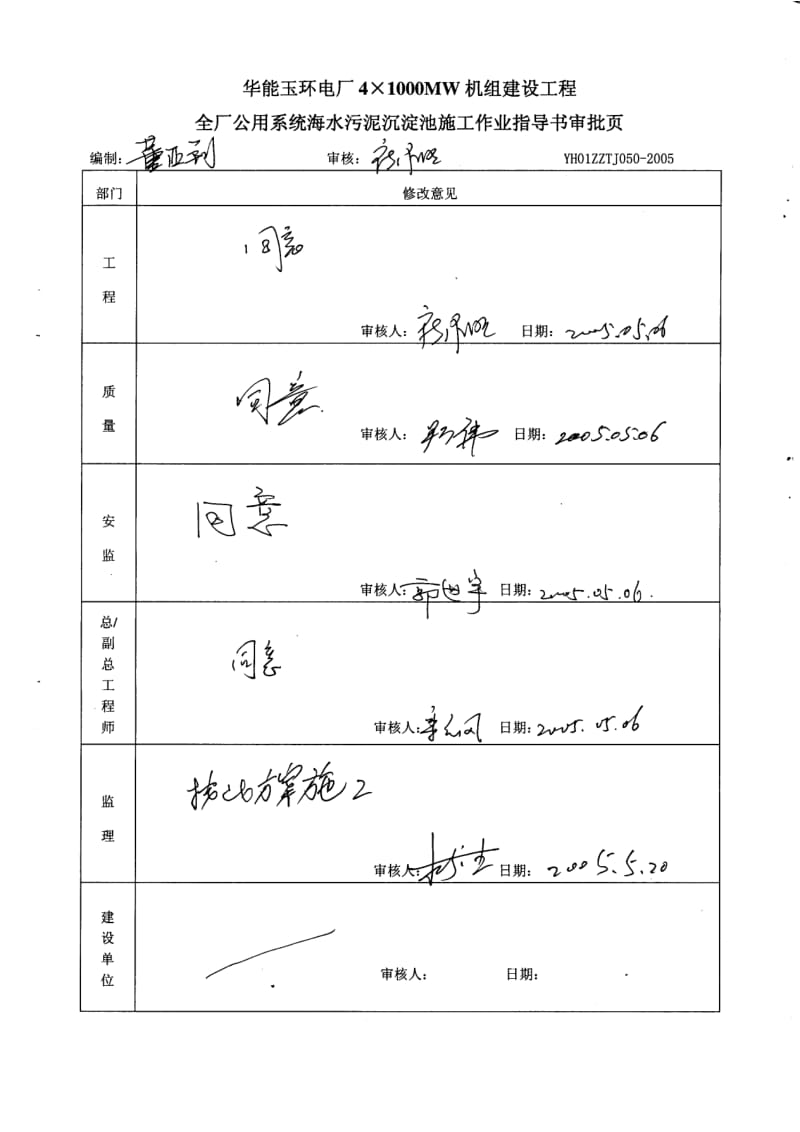 华能玉环电厂 4×1000MW 机组建设工程
全厂公用系统海水污泥沉淀池施工作业指导书审批页
编制: 审核: YH01ZZTJ050-2005
部门 修改意见
工程
同意
审核人: 日期: 2005.05.06
质量
同意
审核人: 日期: 2005.05.06
安监
同意
审核人: 日期: 2005.05.06.
总/副总工程师
同意
审核人: 日期: 2005.05.06
监理
按此方案施工
审核人: 日期: 2005.5.20
建设单位
审核人: 日期: